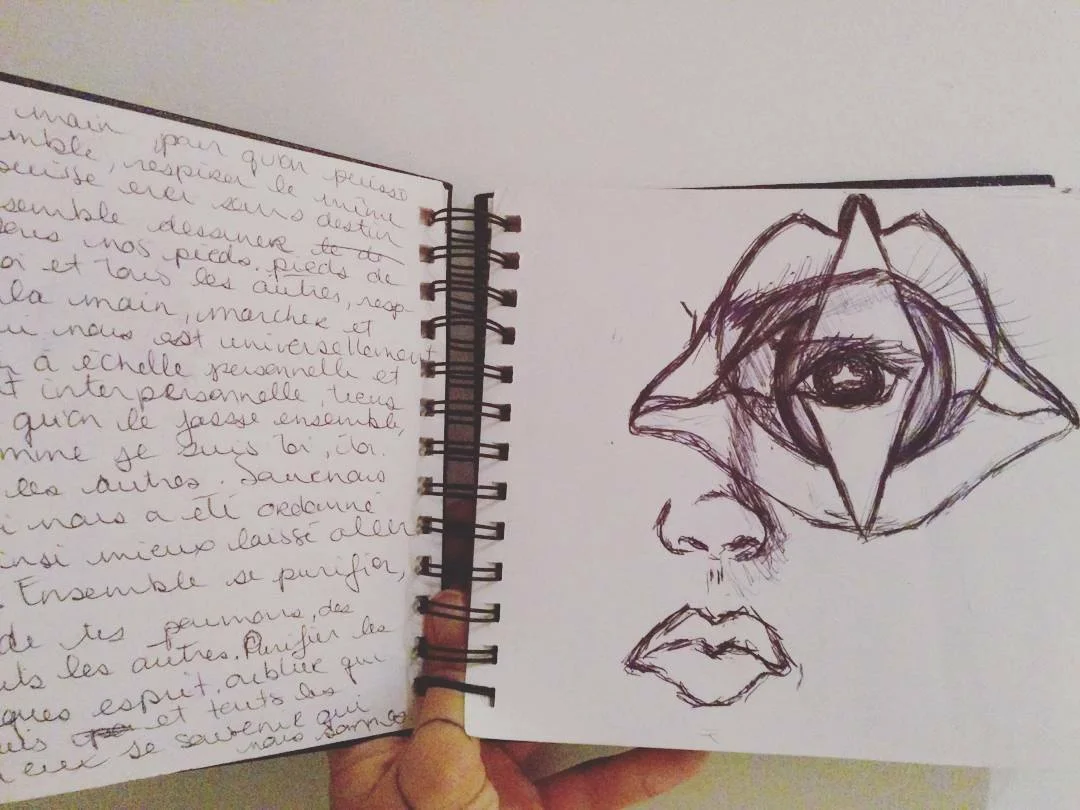 main, pour qu'on puisse
emble, respirer le même
puisse sens destin
semble dessiner
sous nos pieds. pieds de
et tous les autres, resp-
la main, marcher et
ui nous est universellement
à échelle personnelle et
interpersonnelle, tiens
qu'on le fassse ensemble,
mme je suis toi,
les autres. Souvenons
i nous a été ordonné
insi mieux laissé aller
. Ensemble se purifier,
de tes poumons, des
les autres. Purifier les
ques esprit, oublié qui
uis et touts les
eux se souvenir qui
nous sommes